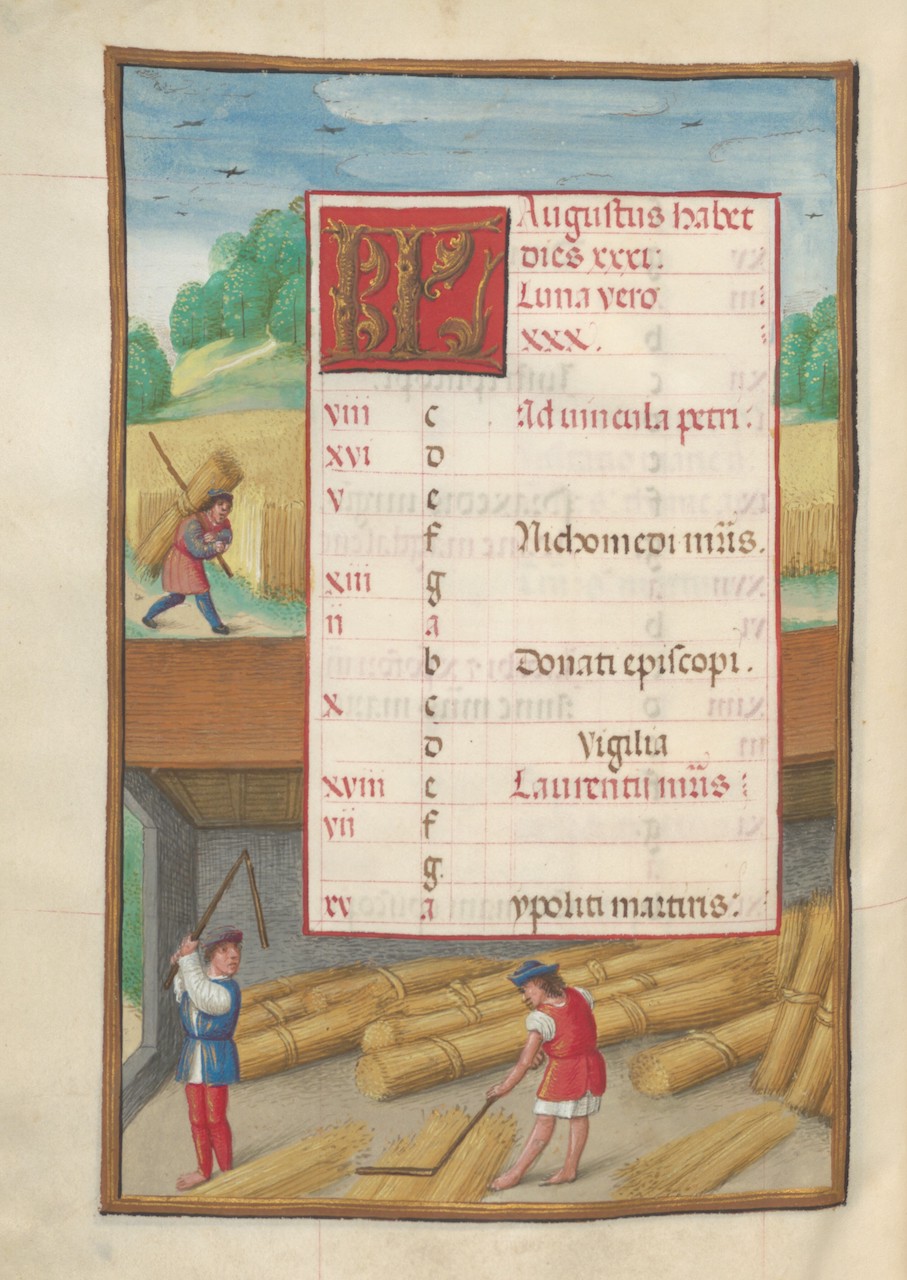 KL Augustus habet
dies xxxi.
Luna vero
xxx.
viii c Ad uincula petri.
xvi d
v e
f Nichomedi mr̄is.
xiii g
ii a
b Donati episcopi.
x c
d Vigilia
xviii e Laurentii mr̄is
vii f
g.
xv a ypoliti martiris: